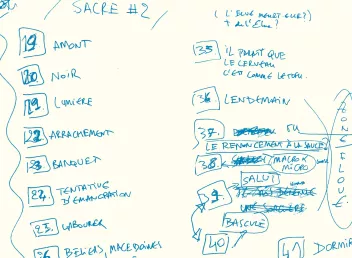 SACRE #2
19 AMONT
20 NOIR
21 LUMIÈRE
22 ARRACHEMENT
23 BANQUET
24. TENTATIVE
D'ÉMANCIPATION
25. LABOURER
26 BÉLIERS, MACÉDOINES
35 IL PARAIT QUE
LE CERVEAU
C'EST COMME
36 LENDEMAIN
37. OU
LE RENONCEMENT À LA SAUCE
38. MACRO
MICRO
SALUT
BASCULE
40
41 DORMIR
ZONE FLOUE